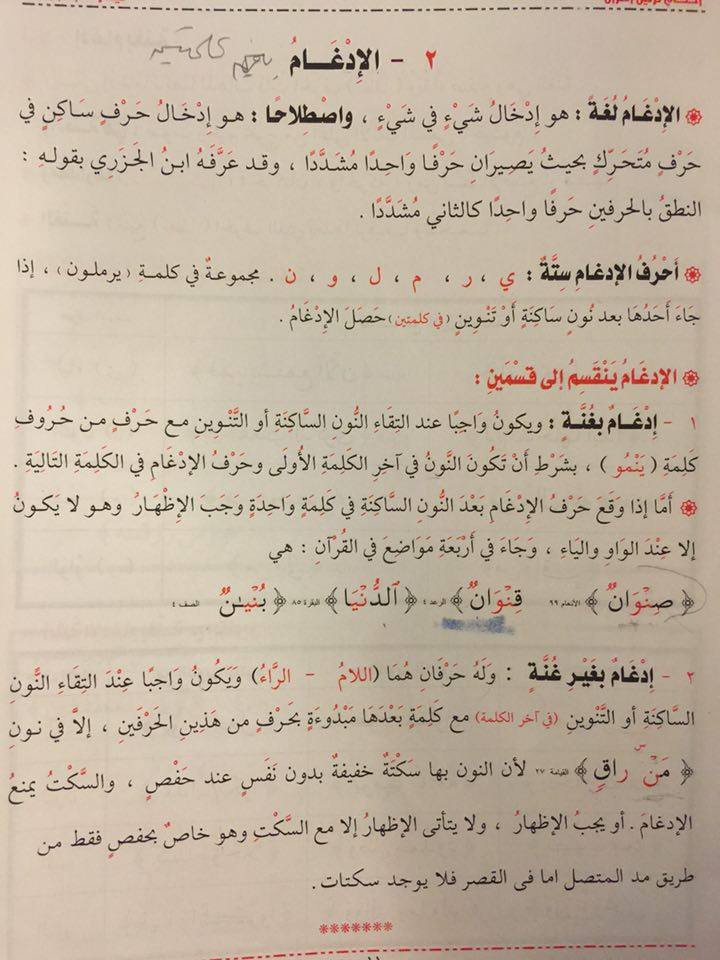 ٢ - الإِدْغَـامُ
❁ الإِدْغَامُ لُغَةً : هو إِدْخَالُ شَيْءٍ في شَيْءٍ ، واصْطِلاحًا : هـو إِدْخَالُ حَرْفٍ سَاكِنٍ في
حَرْفٍ مُتَحَرِّكٍ بحيثُ يَصِيرَانِ حَرْفًا وَاحِدًا مُشَدَّدًا ، وقد عَرَّفَهُ ابنُ الجَزَرِي بقولـهِ :
النطقُ بالحرفينِ حَرفًا واحدًا كالثاني مُشَدَّدًا .
❁ أَحْرُفُ الإِدغامِ سِتَّةٌ : ي ، ر ، م ، ل ، و ، ن . مجموعةٌ في كلمةِ (يرملون) ، إذا
جَاءَ أَحَدُهَا بعد نُونٍ سَاكِنَةٍ أَوْ تَنْوِينٍ (في كلمتين) حَصَلَ الإِدْغَامُ .
❁ الإِدْغَامُ يَنْقَسِمُ إلى قِسْمَينِ :
١ - إِدْغَـامٌ بِغُنَّةٍ : ويكونُ وَاجِبًا عند التِقَاءِ النُّونِ السَّاكِنَةِ أو التَّنْوِينِ مـع حَرْفٍ مـن حُـرُوفِ
كَلِمَةِ ( يَنْمُو ) ، بشَرْطِ أَنْ تَكُونَ النُّونُ في آخِرِ الكَلِمَةِ الأُولَى وحَرْفُ الإِدْغامِ في الكَلِمَةِ التَّالِيَةِ .
❁ أَمَّا إذا وَقَعَ حَرْفُ الإِدْغَامِ بَعْدَ النُّونِ السَّاكِنَةِ في كَلِمَةٍ وَاحِدَةٍ وَجَبَ الإِظْهَـارُ وهـو لا يَكُونُ
إلا عِنْدَ الوَاوِ والياءِ ، وَجَاءَ في أَرْبَعَةِ مَوَاضِعَ في القُرْآنِ : هي
﴿ صِنْوَانٌ ﴾ الأنعام ٩٩ قِنْوَانٌ ﴾ الرعد ٤ ﴿ الدُّنْيَا ﴾ البقرة ٨٥ ﴿ بُنْيَـٰنٌ الصف ٤
٢ - إِدْغَامٌ بِغَيْرِ غُنَّةٍ : وَلَهُ حَرْفَانِ هُمَا (اللامُ - الرَّاءُ) وَيَكُونُ وَاجبًا عِنْدَ التِقَاءِ النُّونِ
السَّاكِنَةِ أو التَّنْوِينِ (في آخر الكلمة) مع كَلِمَةٍ بَعْدَهَا مَبْدُوءَةٍ بحَرْفٍ من هَذَينِ الحَرْفَينِ ، إلاَّ في نـونِ
﴿ مَنْ ۜ رَاقٍ ﴾ القيامة ٢٧ لأن النون بها سَكْتَةٌ خفيفةٌ بدون نَفَسٍ عند حَفْصٍ ، والسَّكْتُ يمنعُ
الإدغامَ . أو يجبُ الإظهارُ ، ولا يتأتى الإظهارُ إلا مع السَّكْتِ وهو خاصٌ بحفصٍ فقط من
طريق مد المتصل اما فى القصر فلا يوجد سكتات .
*******